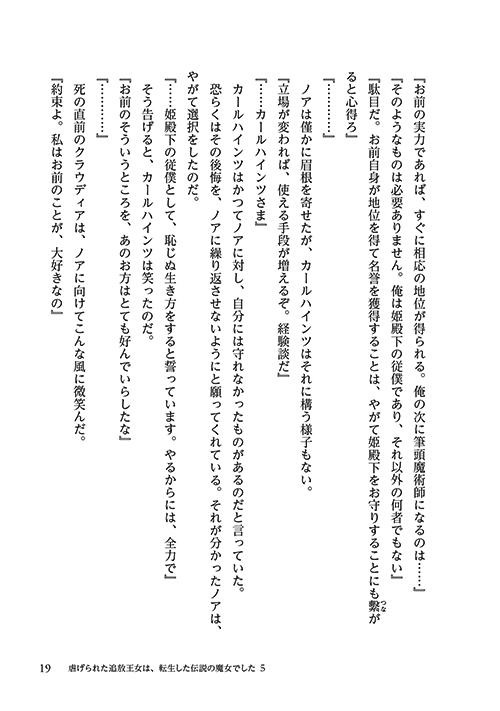 『お前の実力であれば、すぐに相応の地位が得られる。俺の次に筆頭魔術師になるのは……』
『そのようなものは必要ありません。俺は姫殿下の従僕であり、それ以外の何者でもない』
『駄目だ。お前自身が地位を得て名誉を獲得することは、やがて姫殿下をお守りすることにも繋が
つな
ると心得ろ』
『…………』
ノアは僅かに眉根を寄せたが、カールハインツはそれに構う様子もない。
『立場が変われば、使える手段が増えるぞ。経験談だ』
『……カールハインツさま』
カールハインツはかつてノアに対し、自分には守れなかったものがあるのだと言っていた。
恐らくはその後悔を、ノアに繰り返させないようにと願ってくれている。それが分かったノアは、
やがて選択をしたのだ。
『……姫殿下の従僕として、恥じぬ生き方をすると誓っています。やるからには、全力で』
そう告げると、カールハインツは笑ったのだ。
『お前のそういうところを、あのお方はとても好んでいらしたな』
『…………』
死の直前のクラウディアは、ノアに向けてこんな風に微笑んだ。
『約束よ。私はお前のことが、大好きなの』
19 虐げられた追放王女は、転生した伝説の魔女でした 5